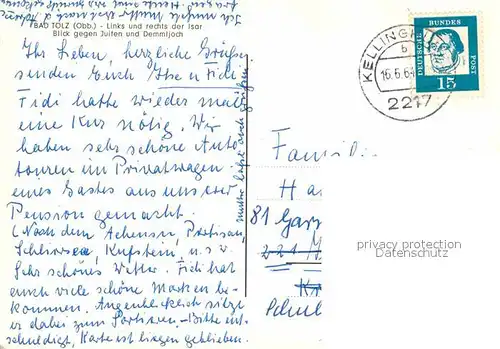 BAD TÖLZ (Obb.) - Links und rechts der Isar
Blick gegen Juifen und Demmljoch
Ihr Lieben, herzliche Grüße
senden Euch Ilse u. Fidi.
Fidi hatte wieder mal
eine Kur nötig. Wir
haben sehr schöne Auto
touren im Privatwagen
eines Gastes aus unserer
Pension gemacht.
(Nach dem Achensee,
Schliersee, Kufstein, u.s.w.
Sehr schönes Wetter. Fidi hat
auch viele schöne Marken be-
kommen. Augenblicklich sitzt
er dabei zum Sortieren. - Bitte ent-
schuldigt, Karte ist liegen geblieben.
Mutter läßt auch grüßen
KELLINGHUSEN
b
16.6.64
2217
DEUTSCHE BUNDESPOST
15
Famili
Ha
81 Gar
privacy protection
Datenschutz